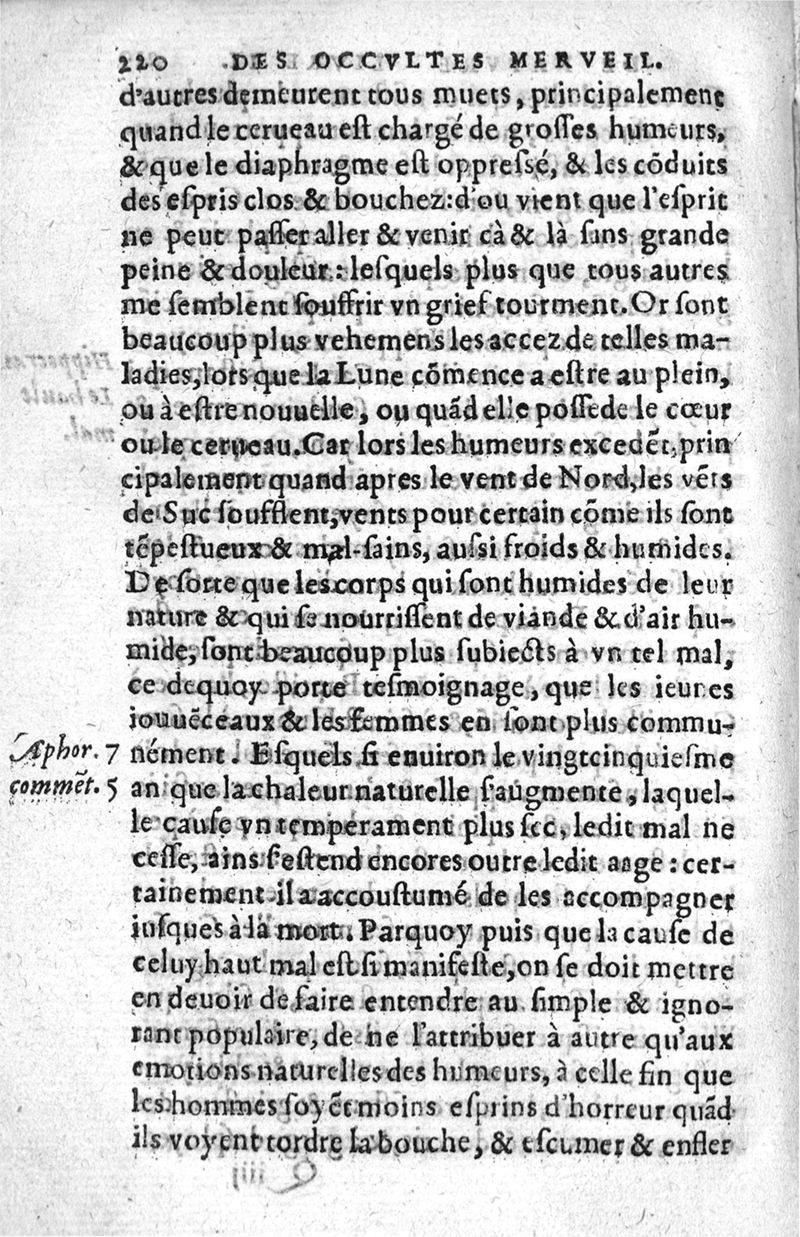 220 DES OCCVLTES MERVEIL.
d'autres demeurent tous muets, principalement
quand le cerueau est chargé de grosses humeurs,
& que le diaphragme est oppressé, & les cōduits
des espris clos & bouchez: d'ou vient que l'esprit
ne peut passer aller & venir cà & là sans grande
peine & douleur: lesquels plus que tous autres
me semblent souffrir vn grief tourment. Or sont
beaucoup plus vehemens les accez de telles ma-
ladies, lors que la Lune cōmence a estre au plein,
ou à estre nouuelle, ou quãd elle possede le cœur
ou le cerueau. Car lors les humeurs excedẽt, prin
cipalement quand apres le vent de Nord, les vẽts
de Suc soufflent, vents pour certain cōme ils sont
tẽpestueux & mal-sains, aussi froids & humides.
De sorte que les corps qui sont humides de leur
nature & qui se nourrissent de viande & d'air hu-
mide, sont beaucoup plus subiects à vn tel mal,
ce dequoy porte tesmoignage, que les ieunes
iouuẽceaux & les femmes en sont plus commu-
Æphor. 7 nément. Esquels si enuiron le vingtcinquiesme
commẽt. 5 an que la chaleur naturelle s'augmente, laquel-
le cause vn temperament plus sec, ledit mal ne
cesse, ains s'estend encores outre ledit aage: cer-
tainement il a accoustumé de les accompagner
iusques à la mort. Parquoy puis que la cause de
celuy haut mal est si manifeste, on se doit mettre
en deuoir de faire entendre au simple & igno-
rant populaire, de ne l'attribuer à autre qu'aux
emotions naturelles des humeurs, à celle fin que
les hommes soyẽt moins esprins d'horreur quãd
ils voyent tordre la bouche, & escumer & enfler